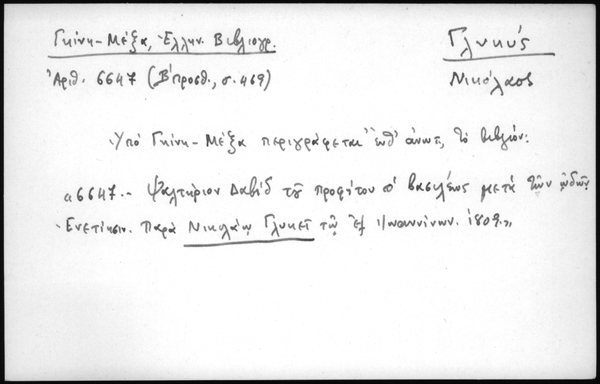 Γκίνη-Μέξα, Ἑλλην. Βιβλιογρ.
Γλυκύς
Ἀριθ. 6647 (Β΄προσθ., σ. 469)
Νικόλαος
Ὑπό Γκίνη-Μέξα περιγράφεται ὑπ' ἀνωτ, τὸ βιβλίον:
«6647.- Ψαλτήριον Δαβίδ τοῦ προφήτου καὶ βασιλέως μετά τῶν ᾠδῶν
Ἐνετίησιν. Παρὰ Νικολάῳ Γλυκεῖ τῷ ἐξ Ἰωαννίνων. 1809.»